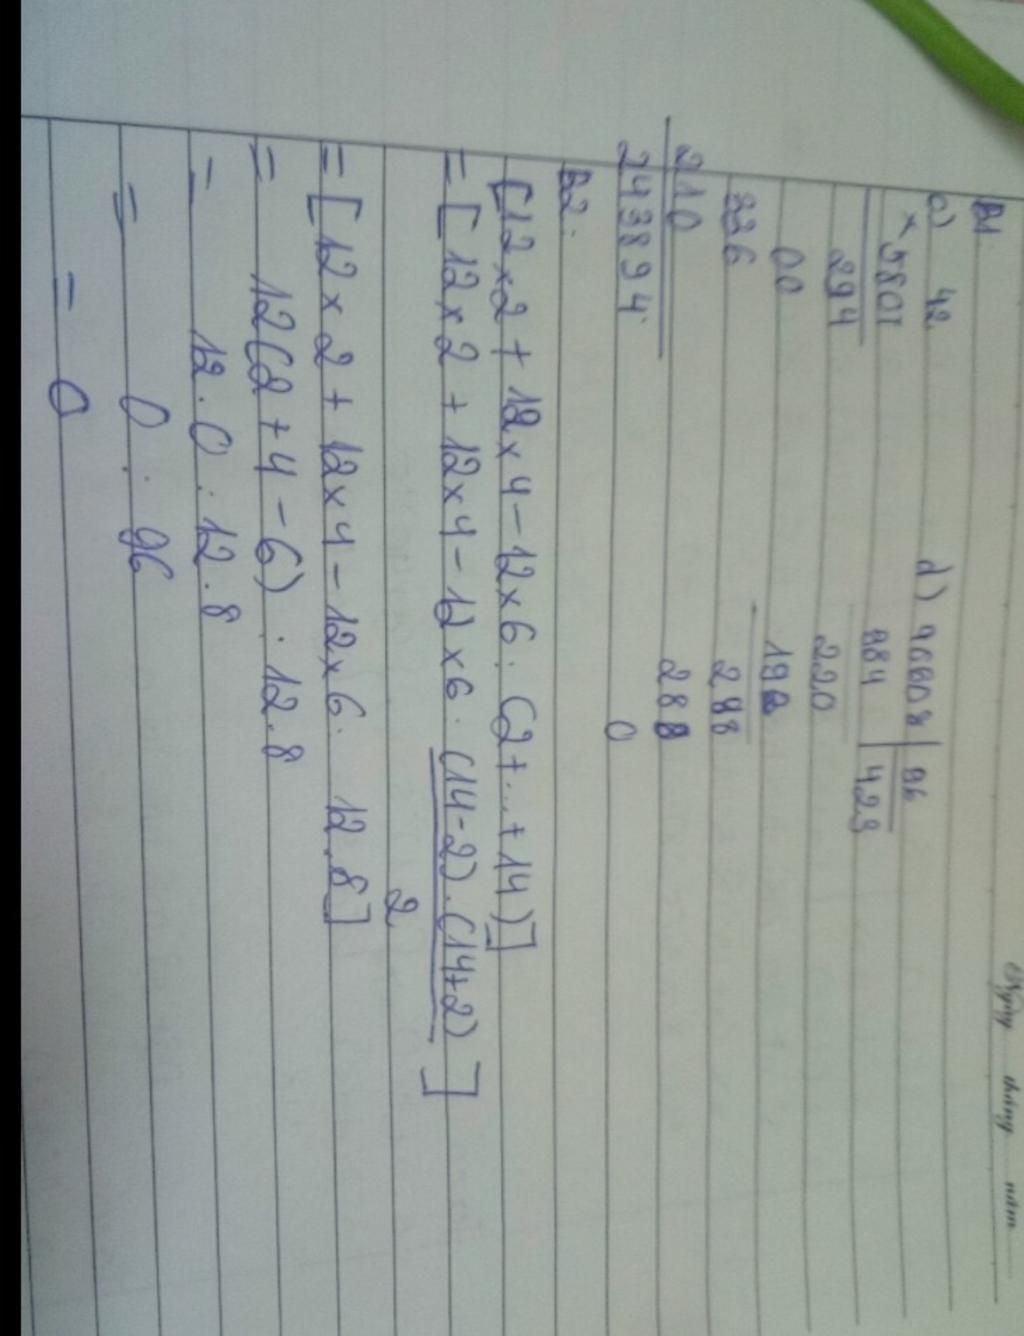 Ngày tháng năm
B1.
c) 42
× 5807
294
00
336
210
243894
d) 40608 | 96
384 | 423
220
192
288
288
0
B2.
[12×2 + 12×4 - 12×6 . (2+...+14)]
= [12×2 + 12×4 - 12×6 . (14-2).(14+2)]
2
= [12×2 + 12×4 - 12×6 . 12.8]
= 12(2+4-6) . 12.8
= 12.0 . 12.8
= 0 . 96
= 0